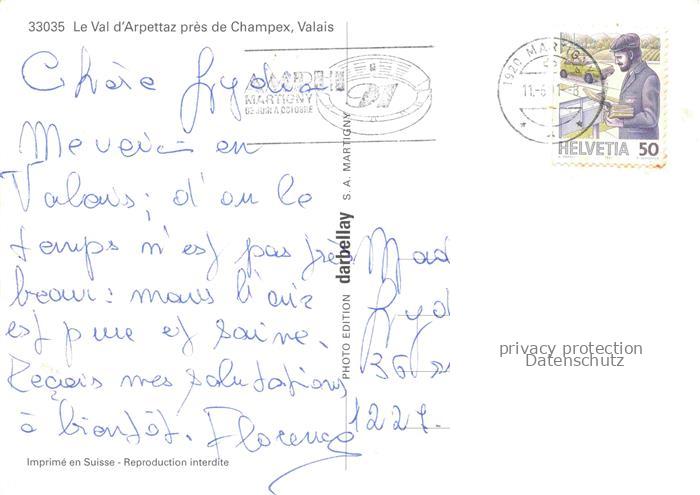 33035 Le Val d'Arpettaz près de Champex, Valais
Chère Lydia
Me voici en
Valais; d'où le
temps n'est pas très
beau: mais l'air
est pure et saine.
Reçois mes salutations
à bientôt. Florence
Imprimé en Suisse - Reproduction interdite
PHOTO EDITION darbellay S.A. MARTIGNY
MARTIGNY
91
1920 MARTIG
11.-6
HELVETIA 50
Mad
Lyd
36
1227.
privacy protection
Datenschutz